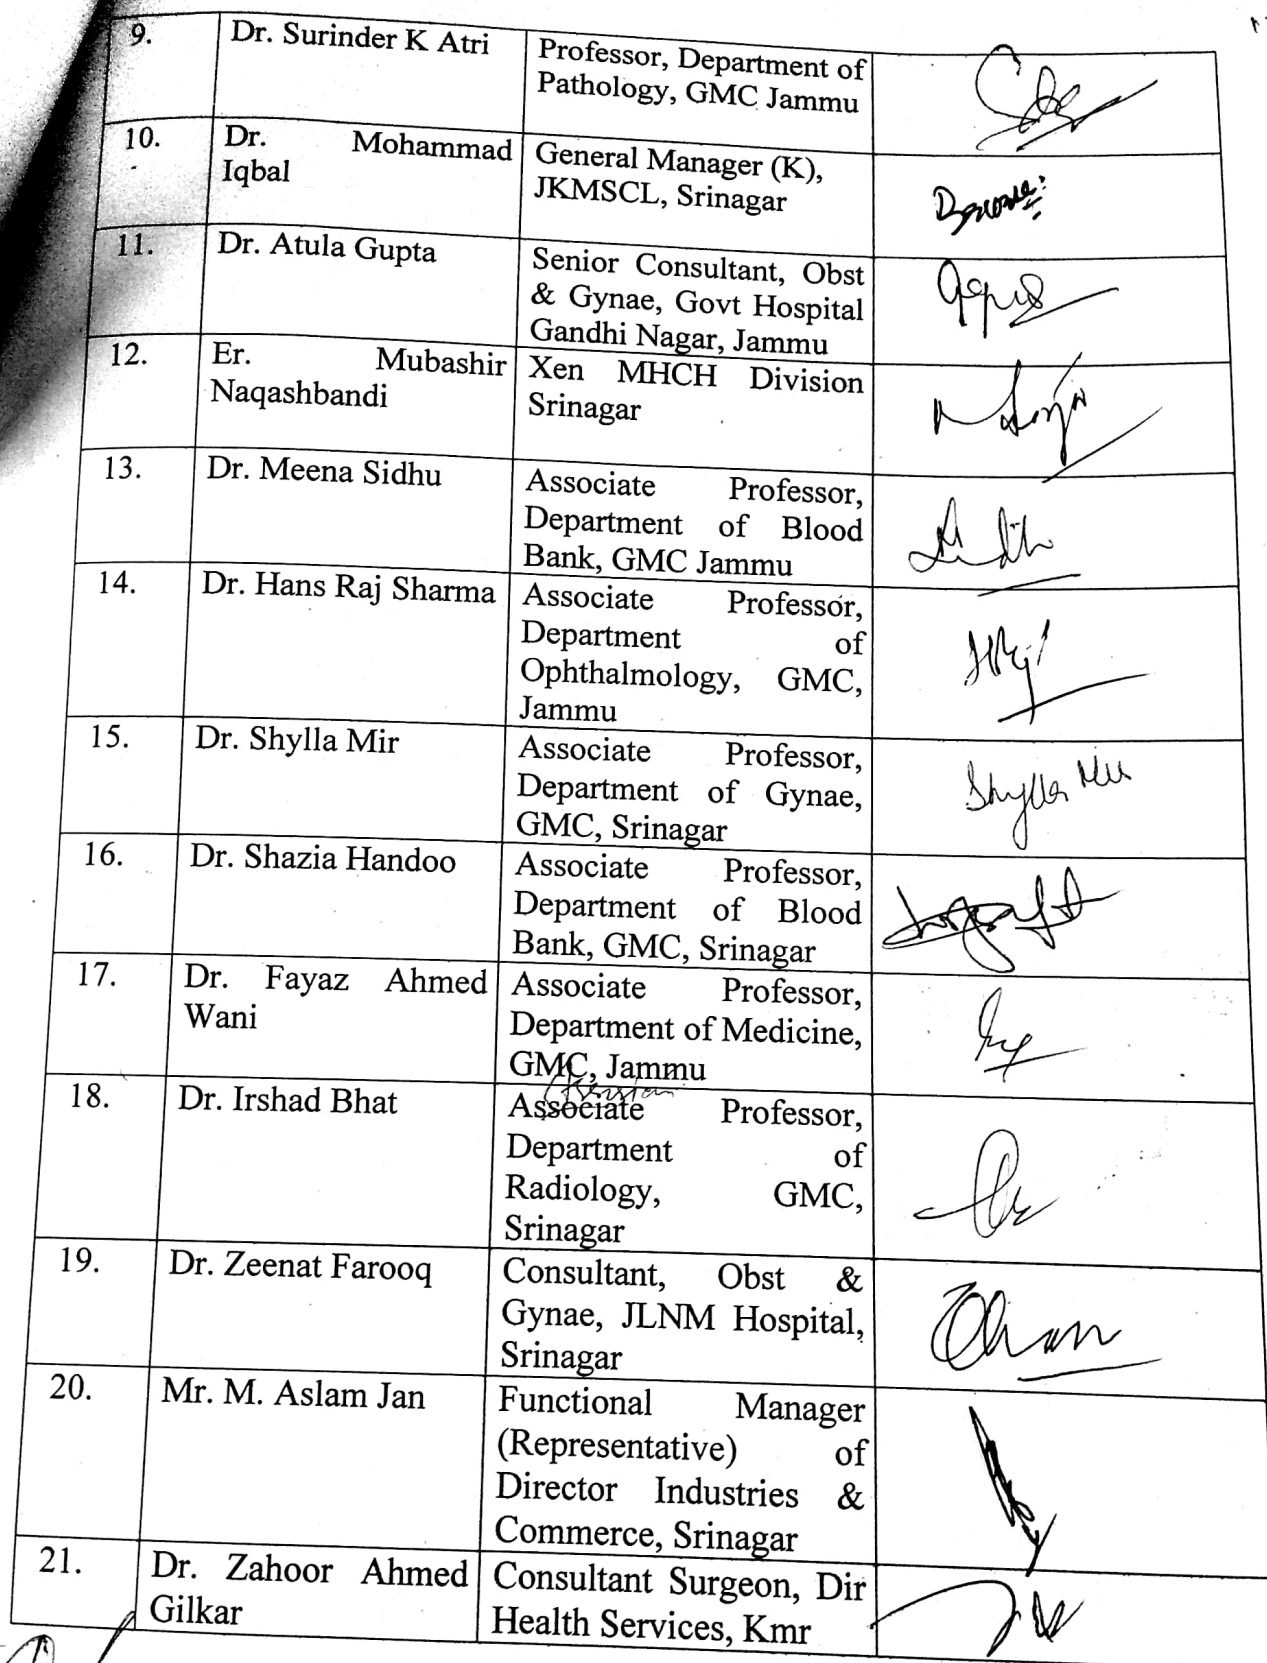 9.
Dr. Surinder K Atri
Professor, Department of
Pathology, GMC Jammu
10.
Dr. Mohammad
Iqbal
General Manager (K),
JKMSCL, Srinagar
11.
Dr. Atula Gupta
Senior Consultant, Obst
& Gynae, Govt Hospital
Gandhi Nagar, Jammu
12.
Er. Mubashir
Naqashbandi
Xen MHCH Division
Srinagar
13.
Dr. Meena Sidhu
Associate Professor,
Department of Blood
Bank, GMC Jammu
14.
Dr. Hans Raj Sharma
Associate Professor,
Department of
Ophthalmology, GMC,
Jammu
15.
Dr. Shylla Mir
Associate Professor,
Department of Gynae,
GMC, Srinagar
Shylla Mir
16.
Dr. Shazia Handoo
Associate Professor,
Department of Blood
Bank, GMC, Srinagar
17.
Dr. Fayaz Ahmed
Wani
Associate Professor,
Department of Medicine,
GMC, Jammu
18.
Dr. Irshad Bhat
Associate Professor,
Department of
Radiology, GMC,
Srinagar
19.
Dr. Zeenat Farooq
Consultant, Obst &
Gynae, JLNM Hospital,
Srinagar
20.
Mr. M. Aslam Jan
Functional Manager
(Representative) of
Director Industries &
Commerce, Srinagar
21.
Dr. Zahoor Ahmed
Gilkar
Consultant Surgeon, Dir
Health Services, Kmr